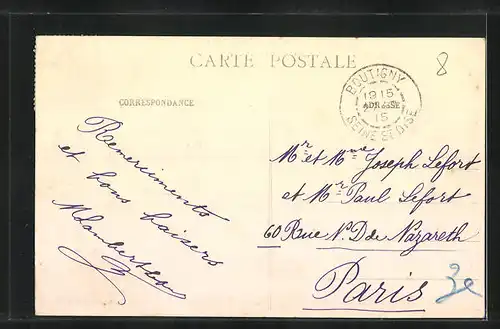 CARTE POSTALE
8
BOUTIGNY
1915
ADRESSE
15
SEINE ET OISE
CORRESPONDANCE
Remerciments
et bons baisers
Mr et Mme Joseph Lefort
et Mr Paul Lefort
60 Rue N. D de Nazareth
Paris 3e